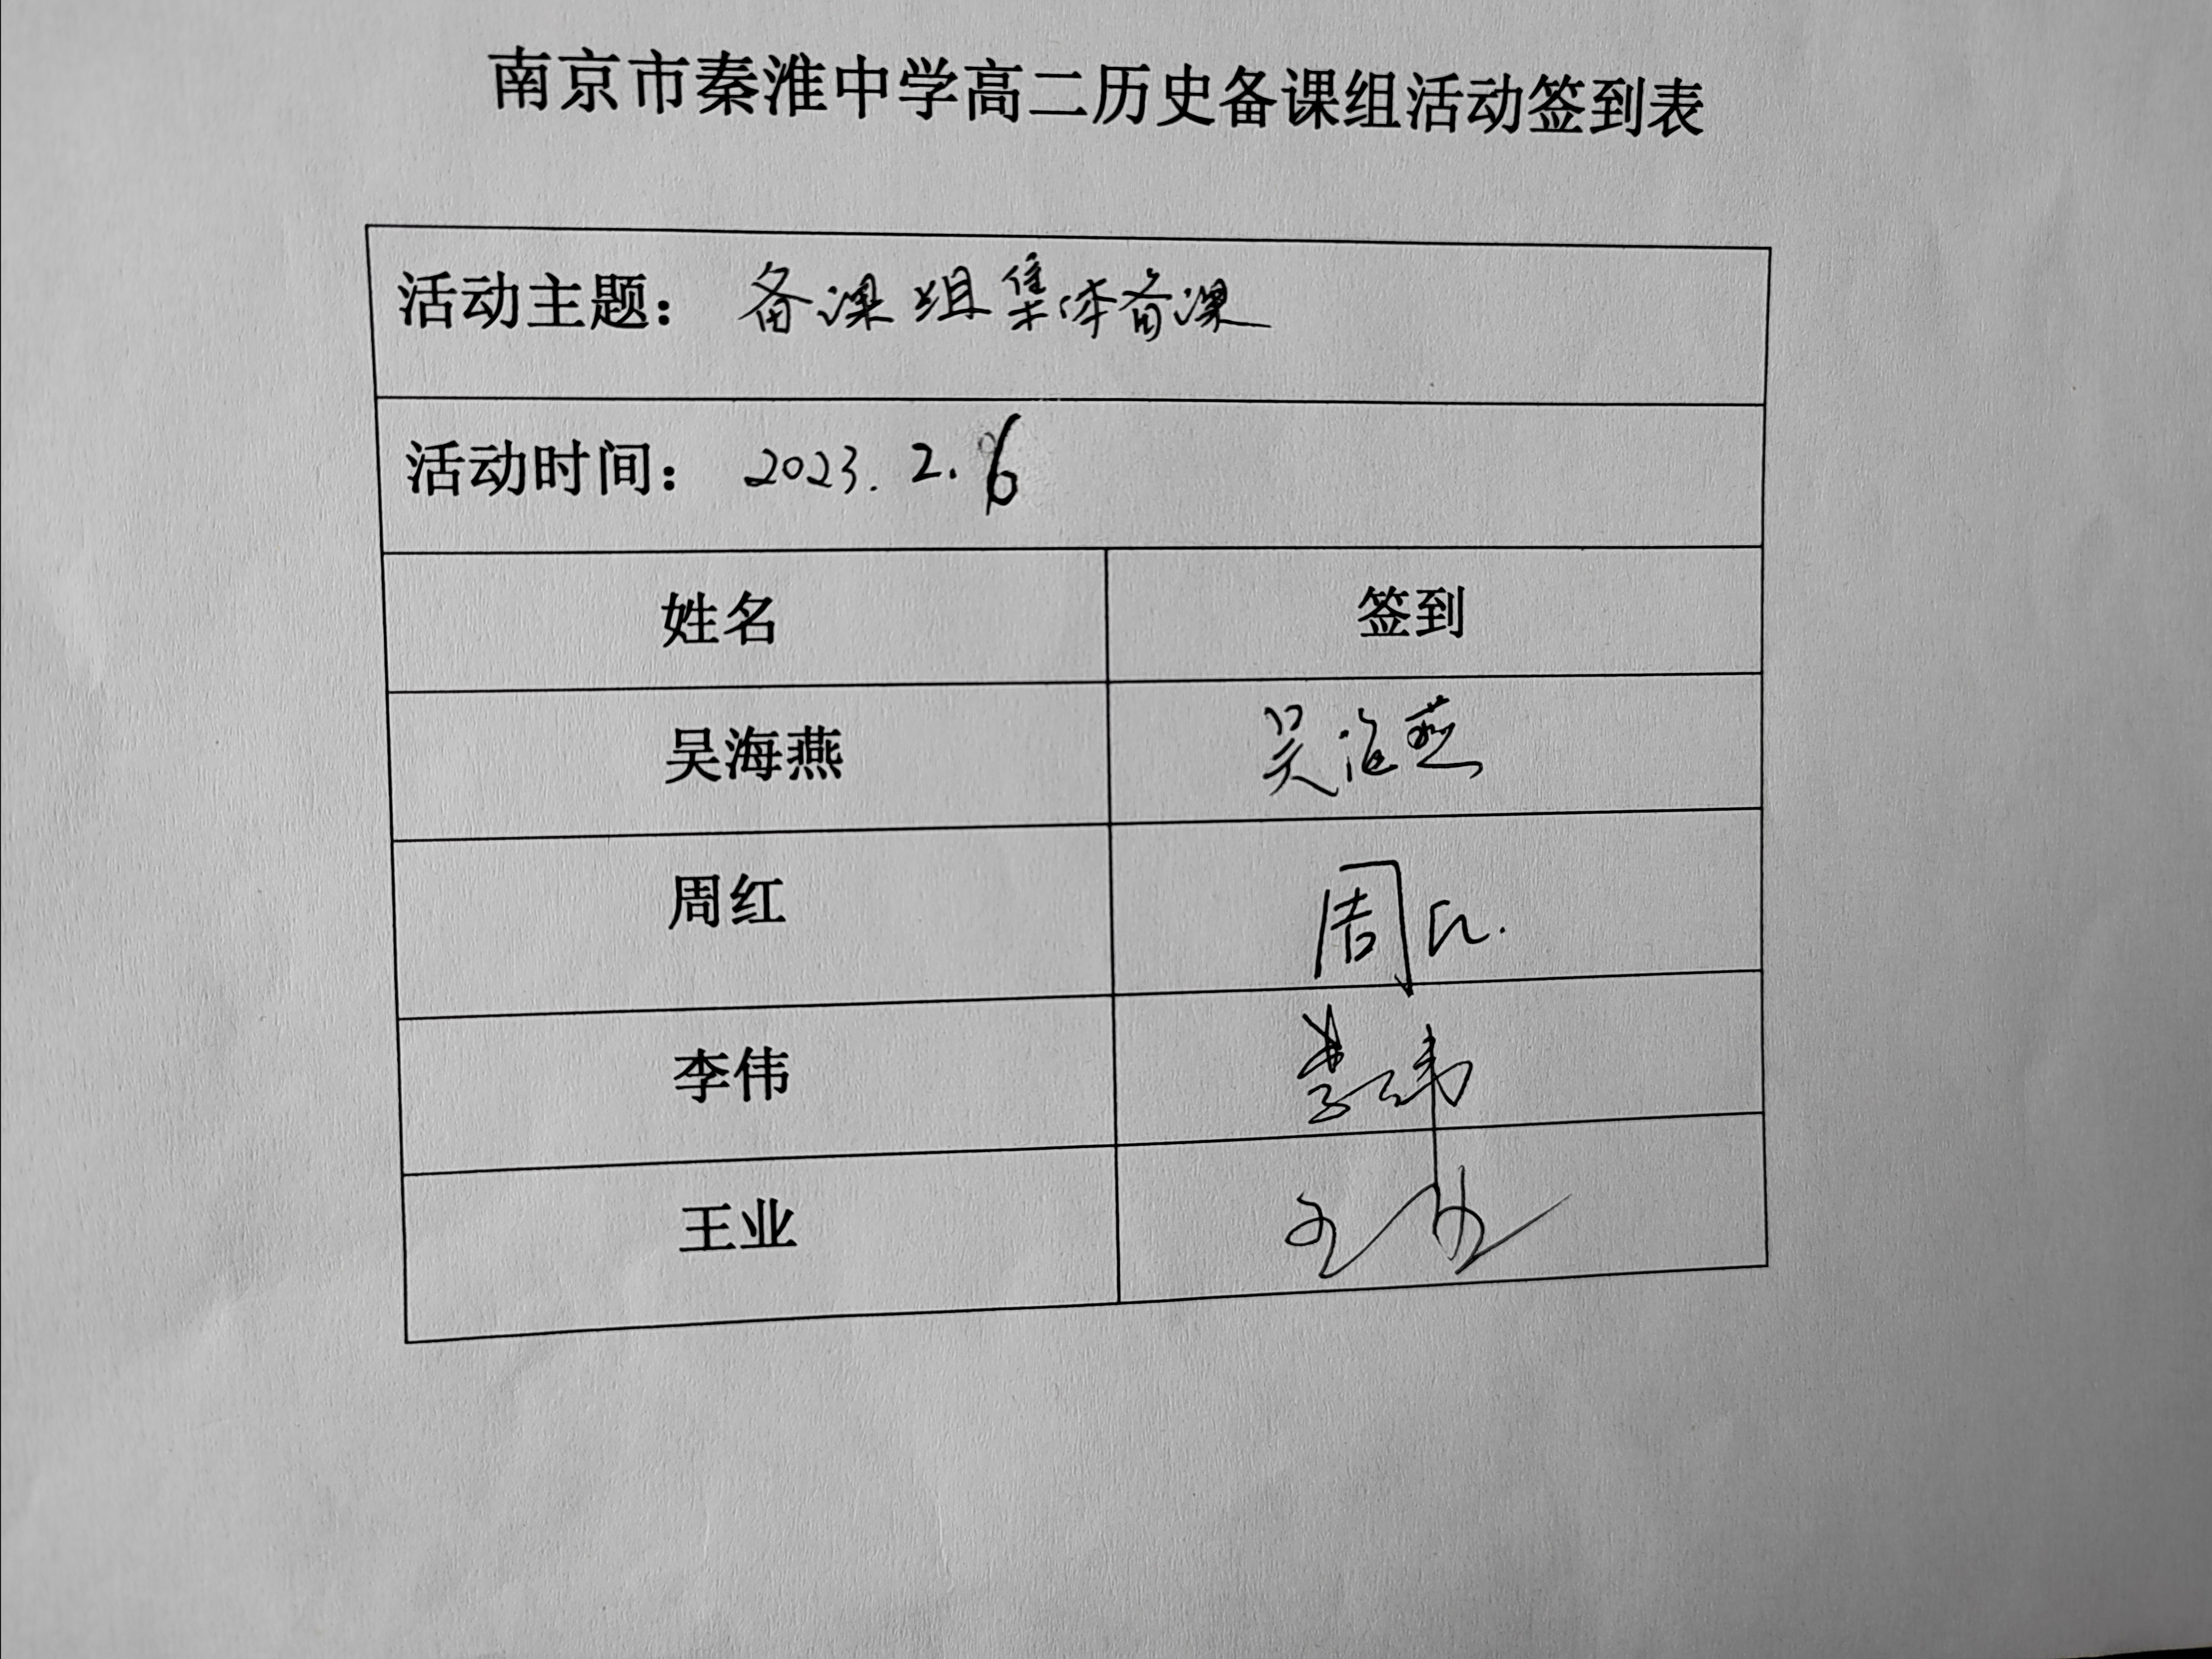 南京市秦淮中学高二历史备课组活动签到表
活动主题： 备课组集体备课
活动时间： 2023.2.6
姓名 签到
吴海燕 吴海燕
周红 周红.
李伟 李伟
王业 王业